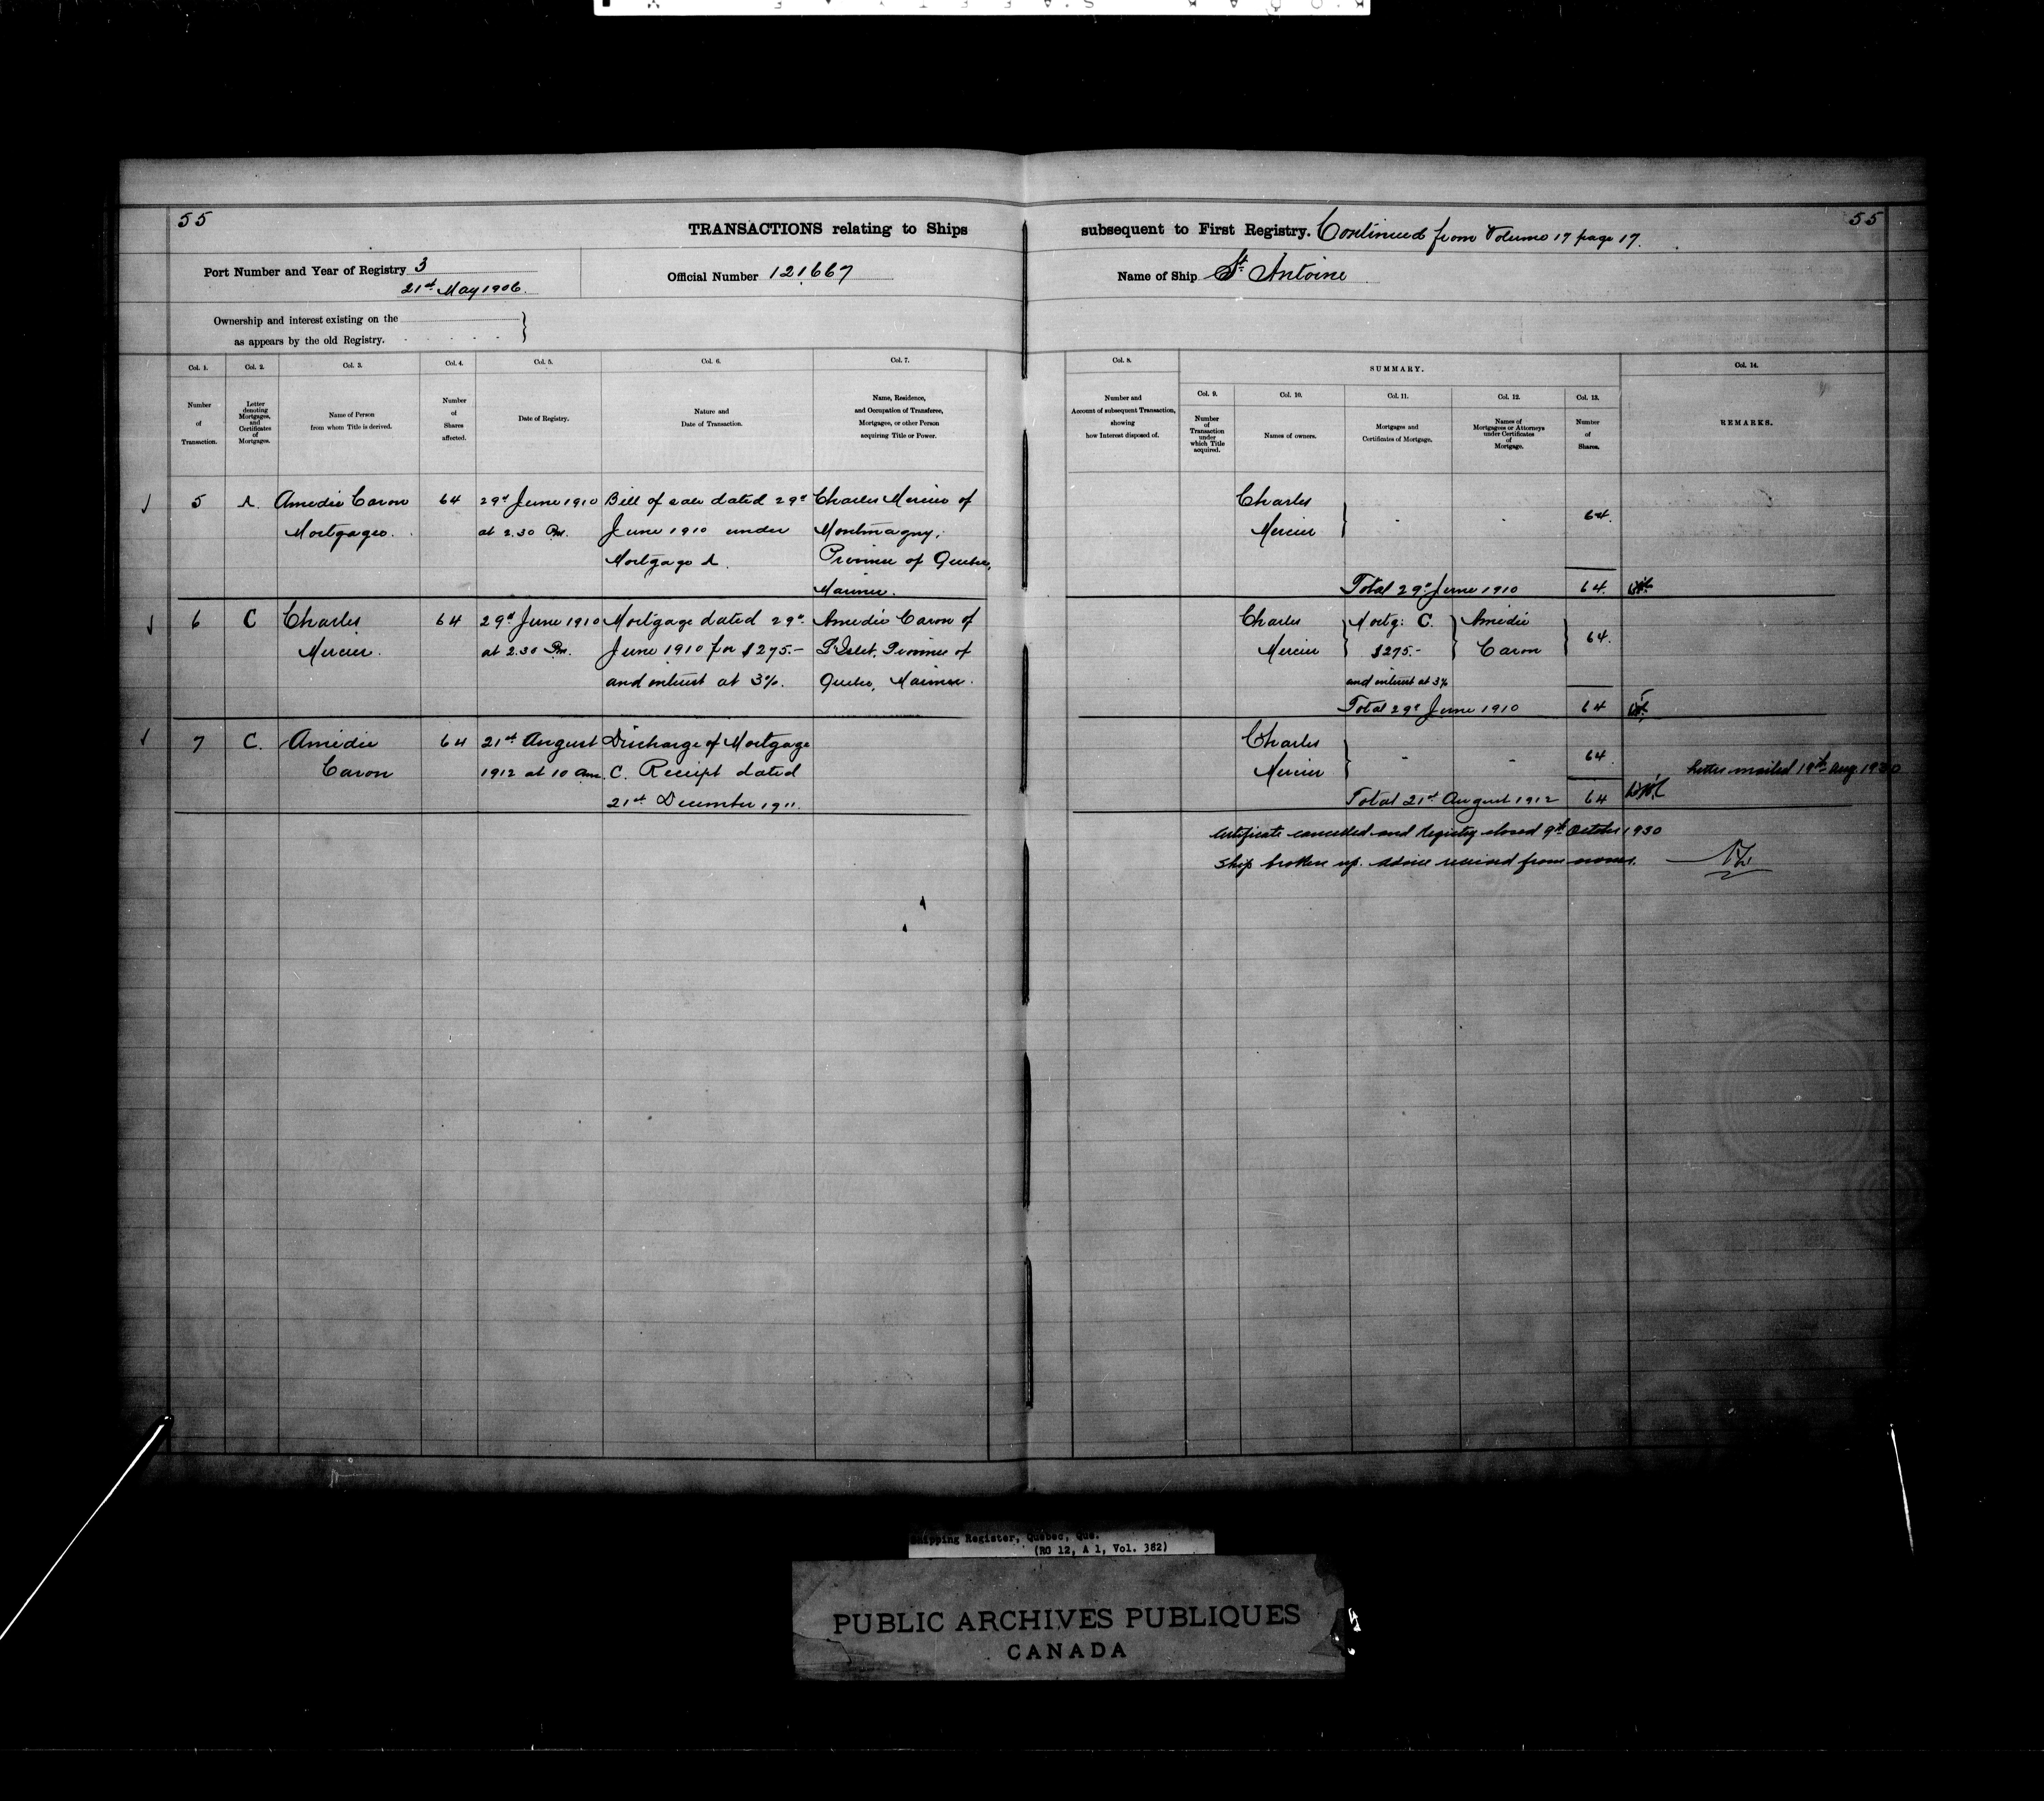 55
55
TRANSACTIONS relating to Ships subsequent to First Registry. Continued from Volume 17 page 17.
Port Number and Year of Registry 3
21st May 1906.
Official Number 121667
Name of Ship St Antoine
Ownership and interest existing on the
as appears by the old Registry.
Col. 1.
Number
of
Transaction.
Col. 2.
Letter
denoting
Mortgages,
and
Certificates
of
Mortgages.
Col. 3.
Name of Person
from whom Title is derived.
Col. 4.
Number
of
Shares
affected.
Col. 5.
Date of Registry.
Col. 6.
Nature and
Date of Transaction.
Col. 7.
Name, Residence,
and Occupation of Transferee,
Mortgagee, or other Person
acquiring Title or Power.
Col. 8.
Number and
Account of subsequent Transaction,
showing
how Interest disposed of.
SUMMARY.
Col. 9.
Number
of
Transaction
under
which Title
acquired.
Col. 10.
Names of owners.
Col. 11.
Mortgages and
Certificates of Mortgage.
Col. 12.
Names of
Mortgagees or Attorneys
under Certificates
of
Mortgage.
Col. 13.
Number
of
Shares.
Col. 14.
REMARKS.
5
A.
Amedie Caron
Mortgagee.
64
29th June 1910
at 2.30 Pm.
Bill of sale dated 29th
June 1910 under
Mortgage A.
Charles Mercier of
Montmagny,
Province of Quebec,
Mariner.
Charles
Mercier
64.
Total 29th June 1910
64.
6
C
Charles
Mercier.
64
29th June 1910
at 2.30 Pm.
Mortgage dated 29th
June 1910 for $275.-
and interest at 3%.
Amedie Caron of
L'Islet, Province of
Quebec, Mariner.
Charles
Mercier
Mortg: C.
$275.-
and interest at 3%
Amedie
Caron
64.
Total 29th June 1910
64
7
C.
Amedie
Caron
64
21st August
1912 at 10 am.
Discharge of Mortgage
C. Receipt dated
21st December 1911.
Charles
Mercier
64
Total 21st August 1912
64
Letter mailed 19th Aug. 1930
Certificate cancelled and Registry closed 9th October 1930
Ship broken up. Advice received from owner.
Shipping Register, Quebec, Que.
(RG 12, A 1, Vol. 382)
PUBLIC ARCHIVES PUBLIQUES
CANADA